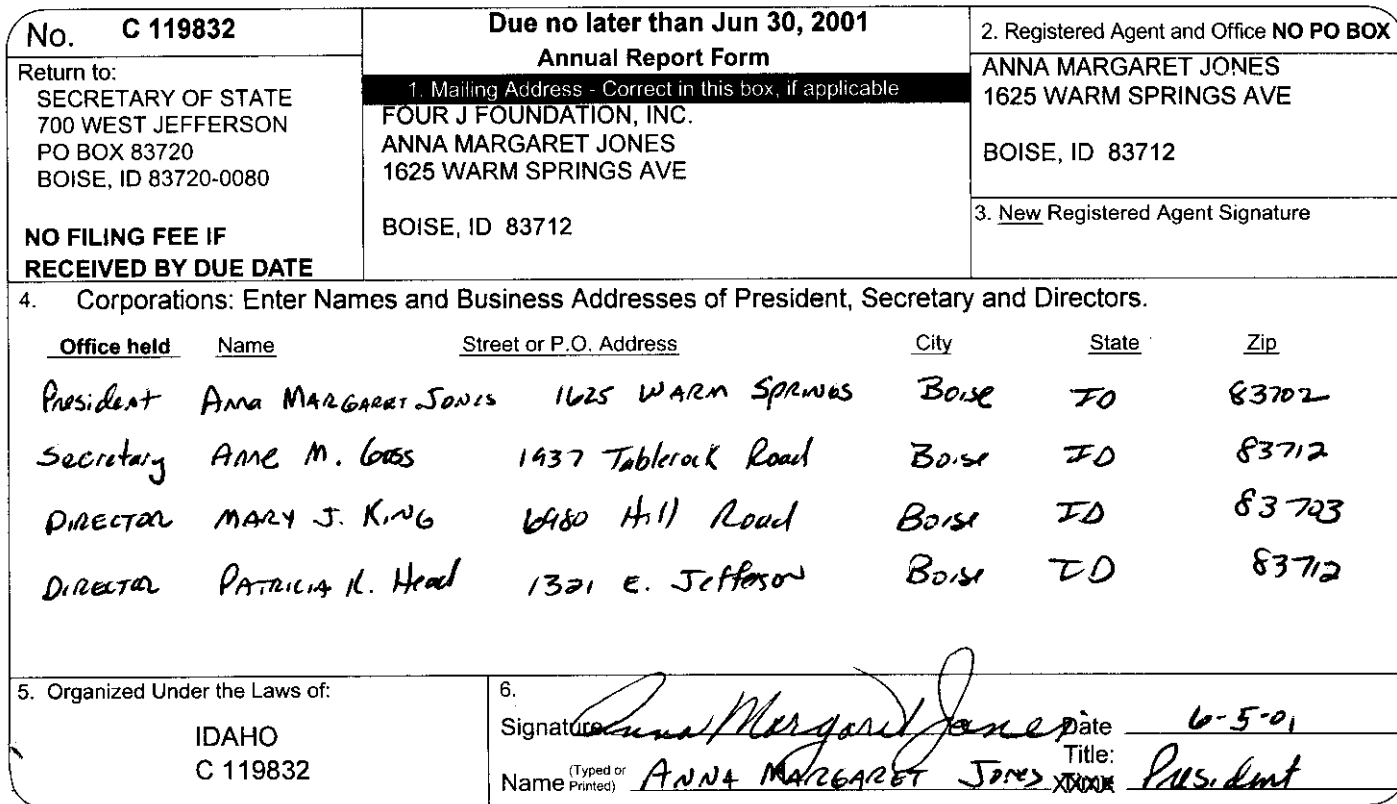 No. C 119832
Return to:
SECRETARY OF STATE
700 WEST JEFFERSON
PO BOX 83720
BOISE, ID 83720-0080
NO FILING FEE IF
RECEIVED BY DUE DATE
Due no later than Jun 30, 2001
Annual Report Form
1. Mailing Address - Correct in this box, if applicable
FOUR J FOUNDATION, INC.
ANNA MARGARET JONES
1625 WARM SPRINGS AVE
BOISE, ID 83712
2. Registered Agent and Office NO PO BOX
ANNA MARGARET JONES
1625 WARM SPRINGS AVE
BOISE, ID 83712
3. New Registered Agent Signature
4. Corporations: Enter Names and Business Addresses of President, Secretary and Directors.
Office held Name Street or P.O. Address City State Zip
President Anna MARGARET JONES 1625 WARM SPRINGS Boise ID 83702
Secretary Anne M. Goss 1937 Tablerock Road Boise ID 83712
DIRECTOR MARY J. KING 6980 Hill Road Boise ID 83703
DIRECTOR PATRICIA K. Head 1321 E. Jefferson Boise ID 83712
5. Organized Under the Laws of:
IDAHO
C 119832
6.
Signature Anna Margaret Jones Date 6-5-01
Name (Typed or Printed) ANNA MARGARET JONES Title: President